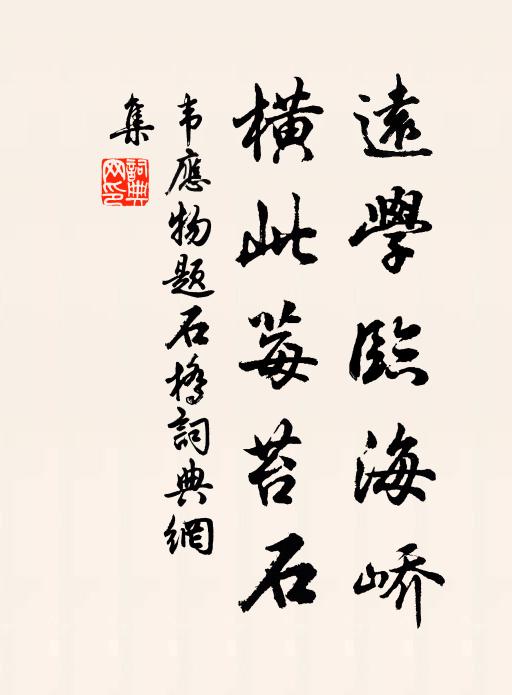 遠學臨海嶠
橫此莓苔石
韦應物題石橋詞典網
集
詞典
网印